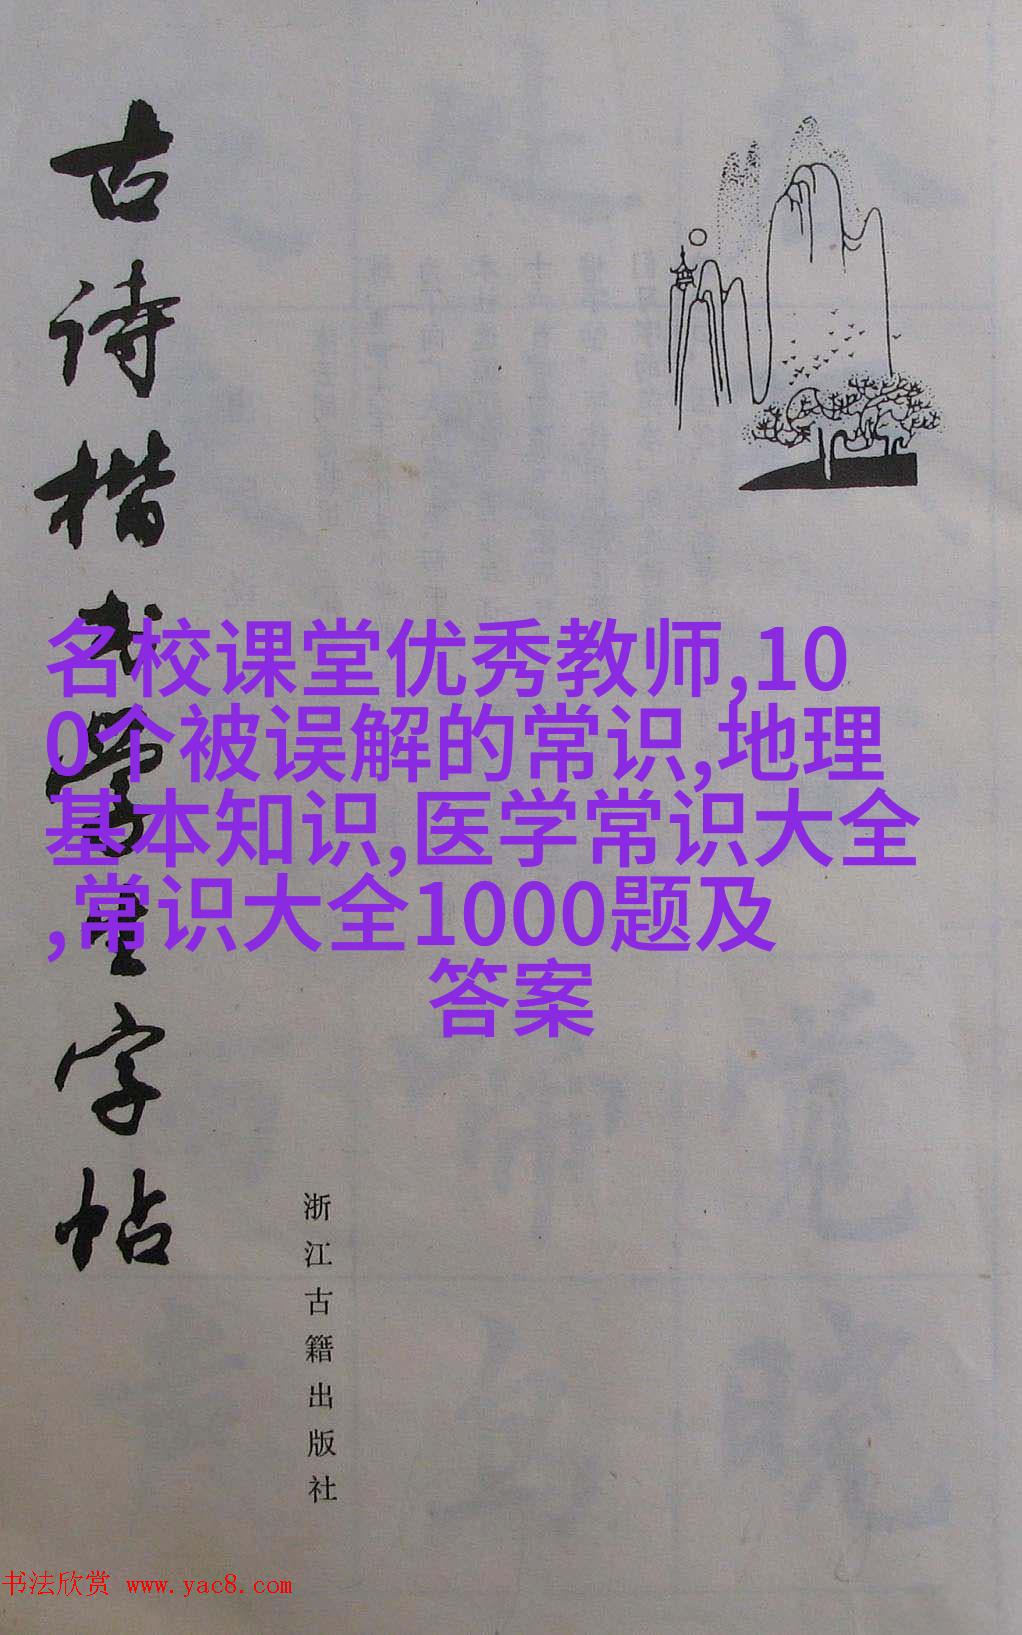 古诗楷书学生字帖
名校课堂优秀教师,10
0个被误解的常识,地理
基本知识,医学常识大全
,常识大全1000题及
答案
浙江古籍出版社
书法欣赏 www.yac8.com